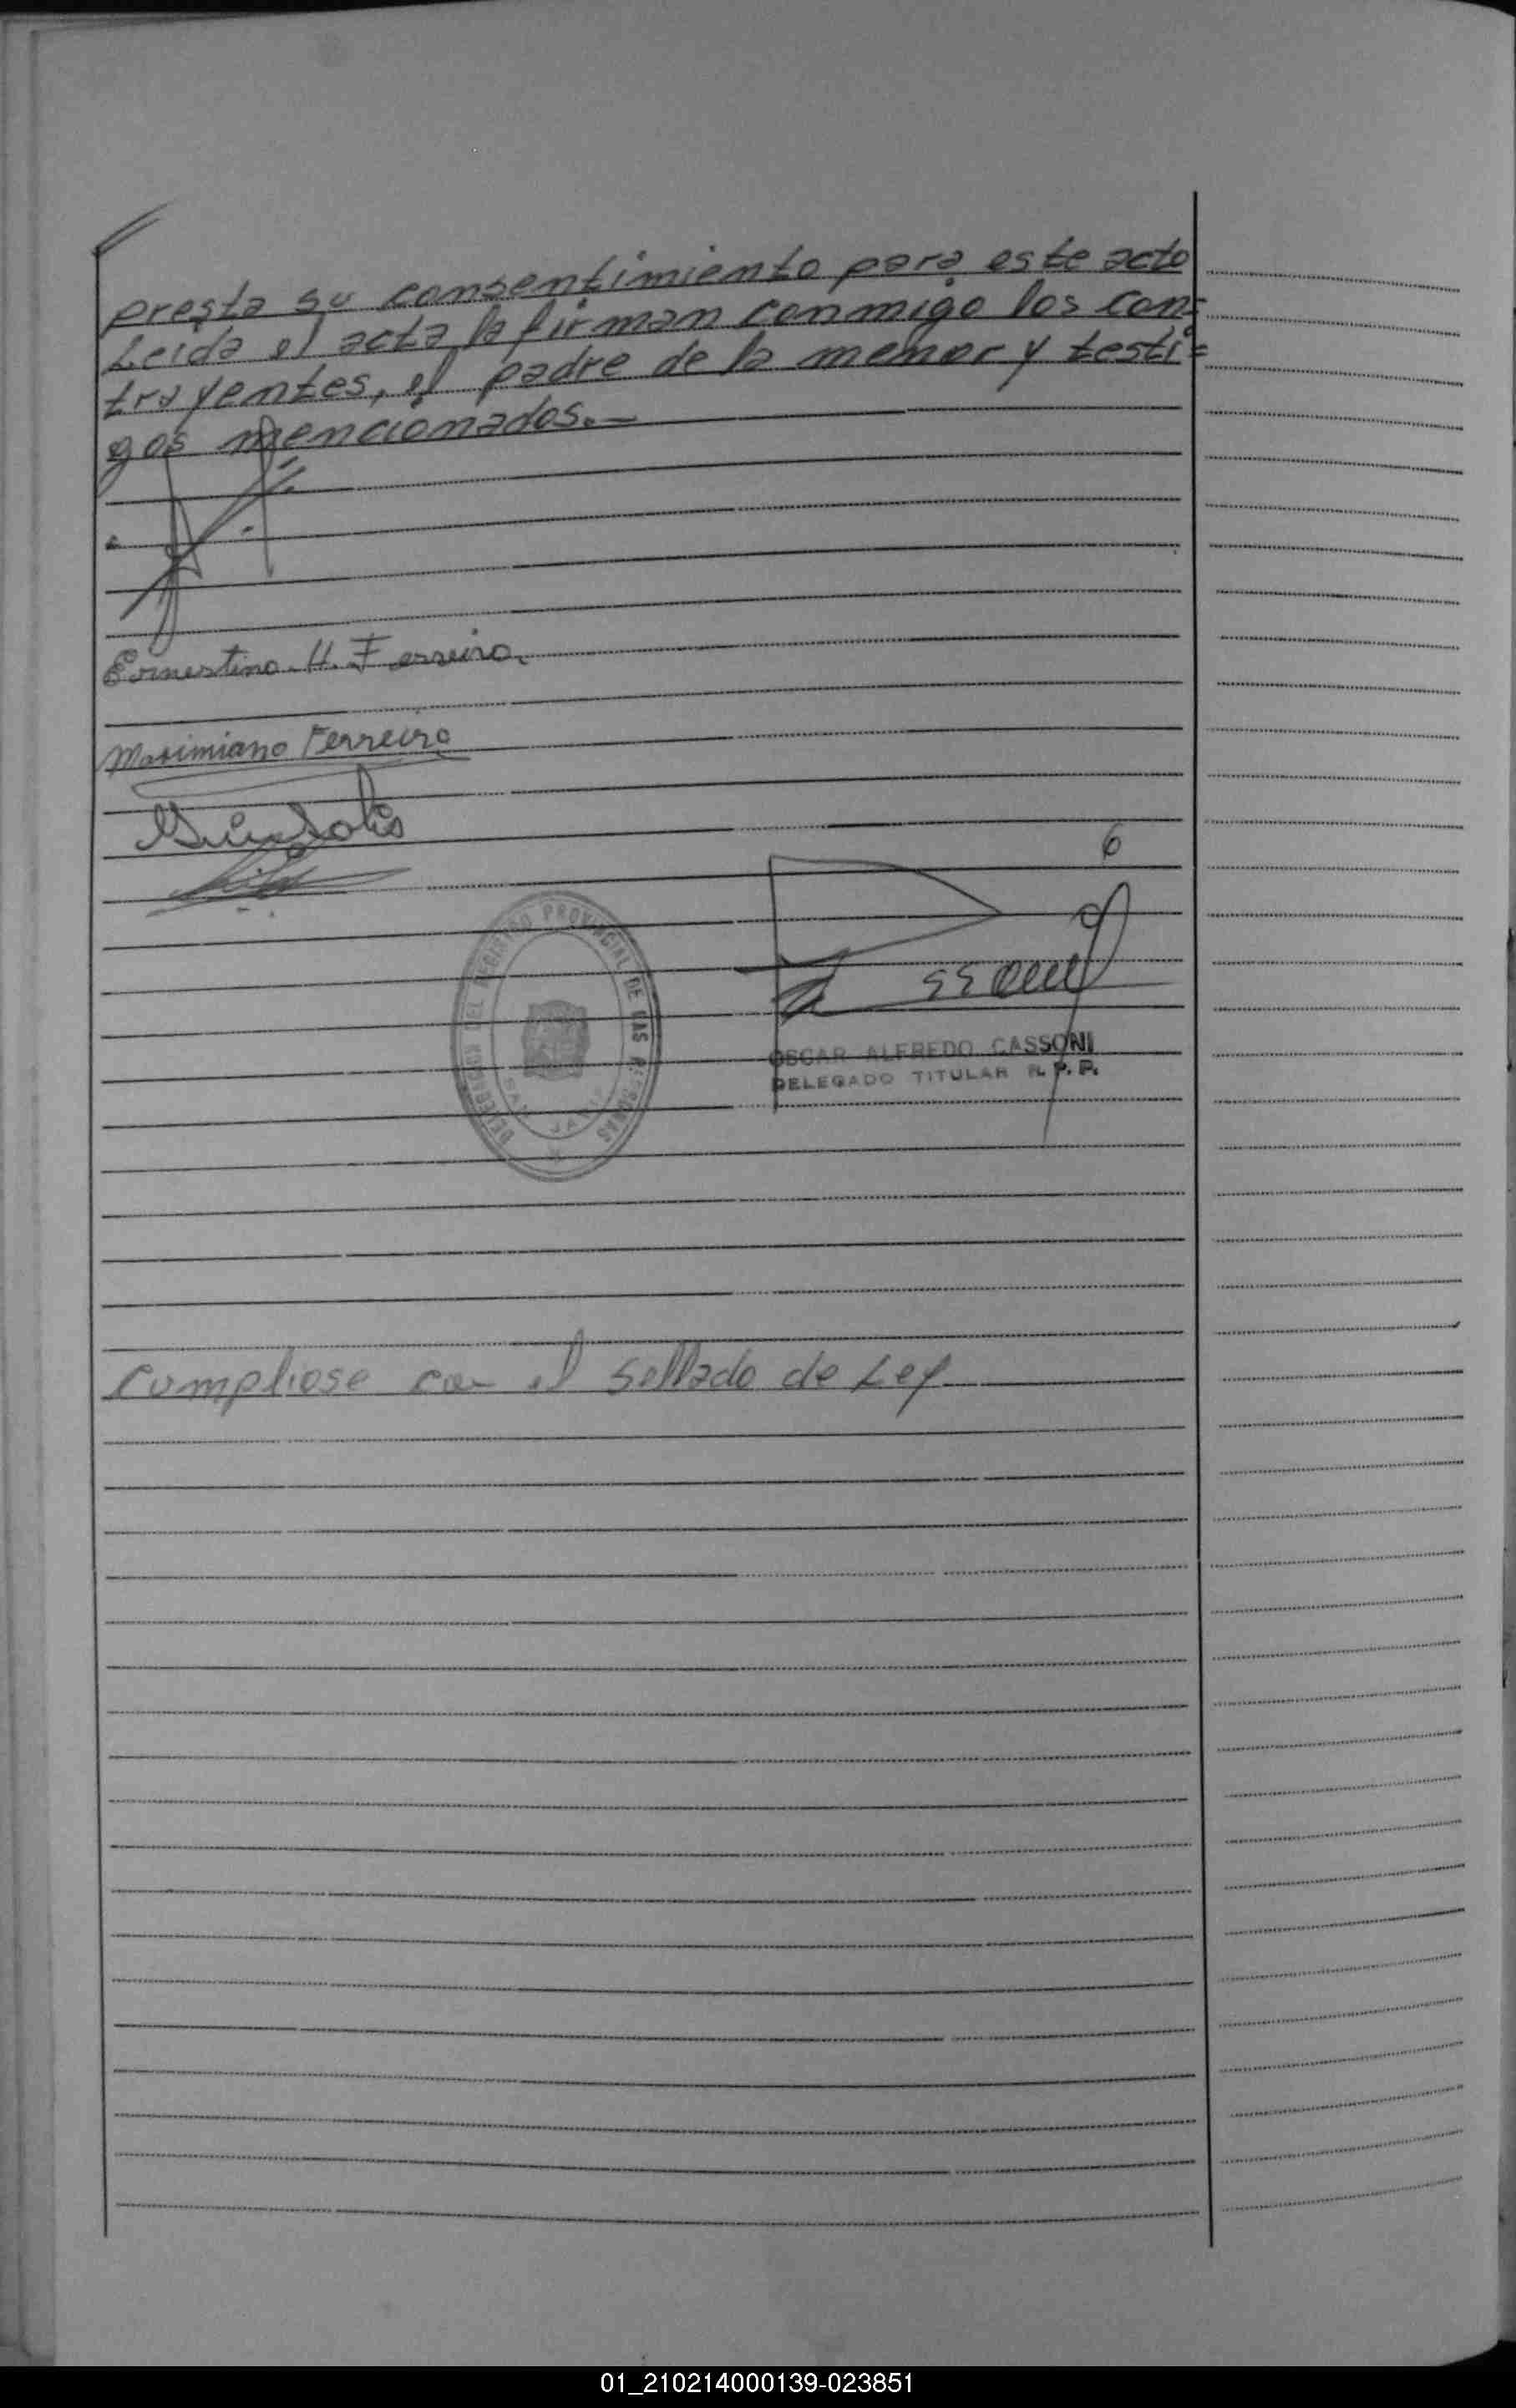 presta su consentimiento para este acto
Leida el acta la firman conmigo los con=
trayentes, el padre de la menor y testi=
gos mencionados.—
Ernestina H. Ferreiro.
Maximiano Ferreiro
6
DELEGACION DEL REGISTRO PROVINCIAL DE LAS PERSONAS
OSCAR ALFREDO CASSONI
DELEGADO TITULAR R. P. P.
cumpliose con el sellado de Ley
01_210214000139-023851